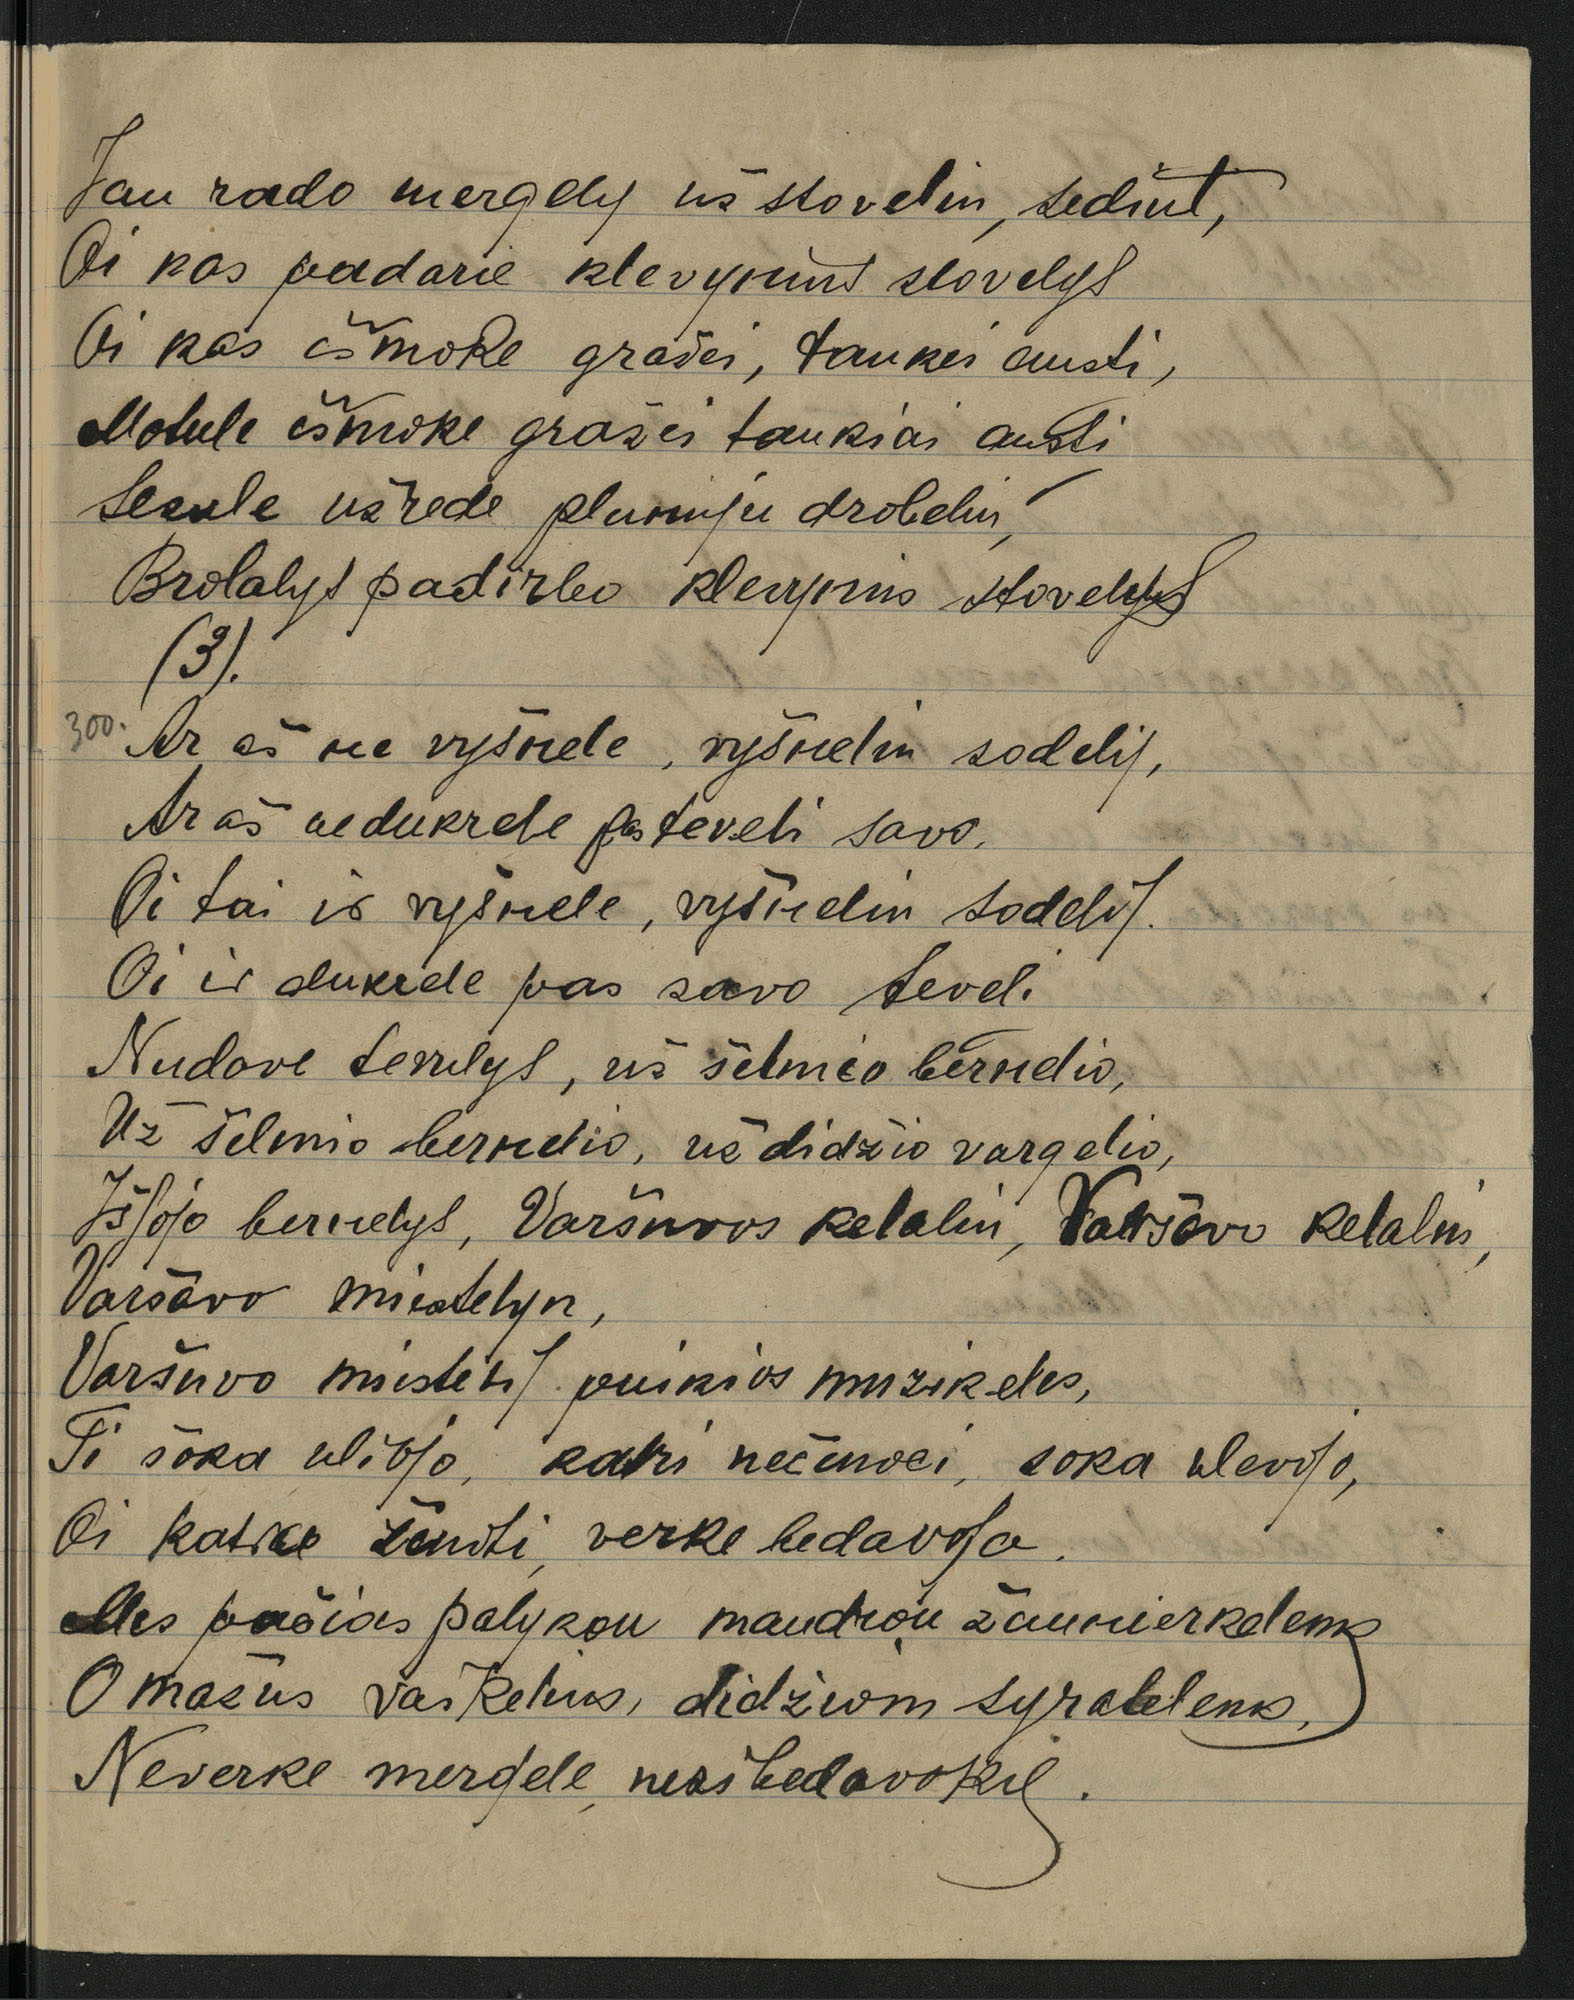 Jau rado mergely už stovelin, sedint,
Oi kas padarie klevynius stovelys
Oi kas išmoke gražei, tankei austi,
Motule išmoke gražei tankiai austi
Sesule užrede plunniju drobelin,
Brolalys padirbo klevynis stovelys
(3).
300. Ar aš ne vyšnele, vyšnelin sodelij,
Ar aš nedukrele pas teveli savo.
Oi tai ir vyšnele, vyšnelin sodelij.
Oi ir dukrele pas savo teveli
Nudave tevelys, už šelmio bernelio,
Už šelmio bernelio, už didžio vargelio,
Išjojo bernelys, Varšuvos kelalin, Varšavo kelalin,
Varšavo miestelyn,
Varšuvo miestelij puikios muzikeles,
Ti šoka ulivojo, katri nežinoti, šoka ulevojo,
Oi katrie ženoti, verke bedavoja.
Mes pačias palykou mandriou žaunierkelems
O mažus vaikelius, didžiom syratelems,
Neverke mergele, nesibedavokie.